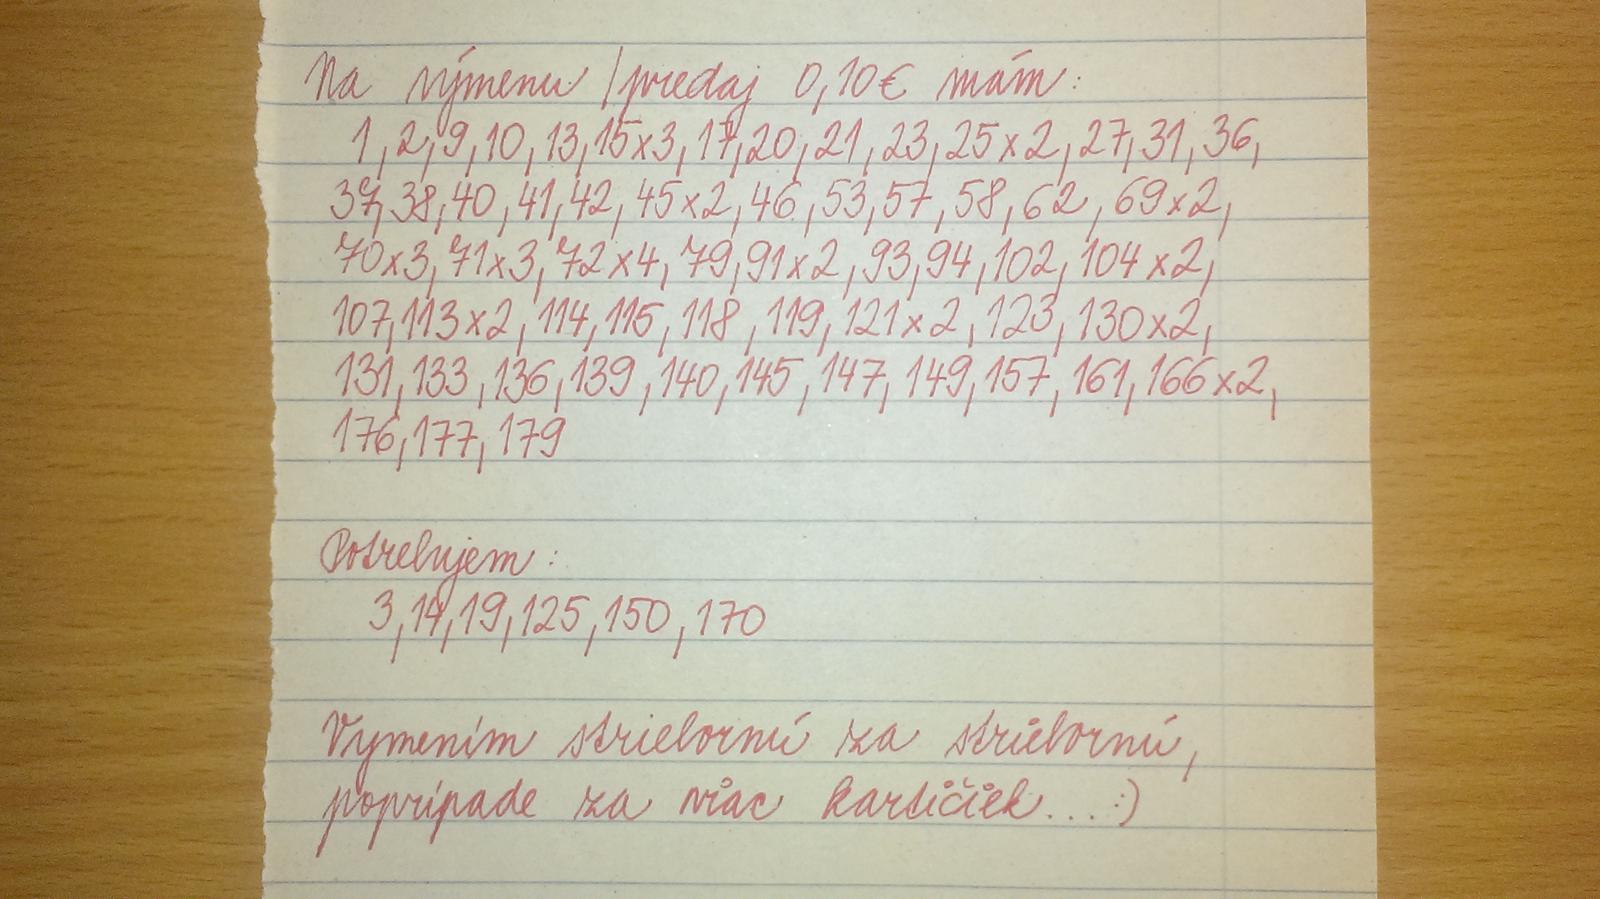 Na výmenu / predaj 0,10€ mám:
1, 2, 9, 10, 13, 15x3, 17, 20, 21, 23, 25x2, 27, 31, 36,
37, 38, 40, 41, 42, 45x2, 46, 53, 57, 58, 62, 69x2,
70x3, 71x3, 72x4, 79, 91x2, 93, 94, 102, 104x2,
107, 113x2, 114, 115, 118, 119, 121x2, 123, 130x2,
131, 133, 136, 139, 140, 145, 147, 149, 157, 161, 166x2,
176, 177, 179
Potrebujem:
3, 14, 19, 125, 150, 170
Vymením striebornú za striebornú,
poprípade za viac kartičiek... :)